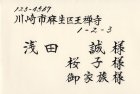 123-4567
川崎市麻生区王禅寺
1-2-3
浅田 誠 様
桜子 様
御家族 様